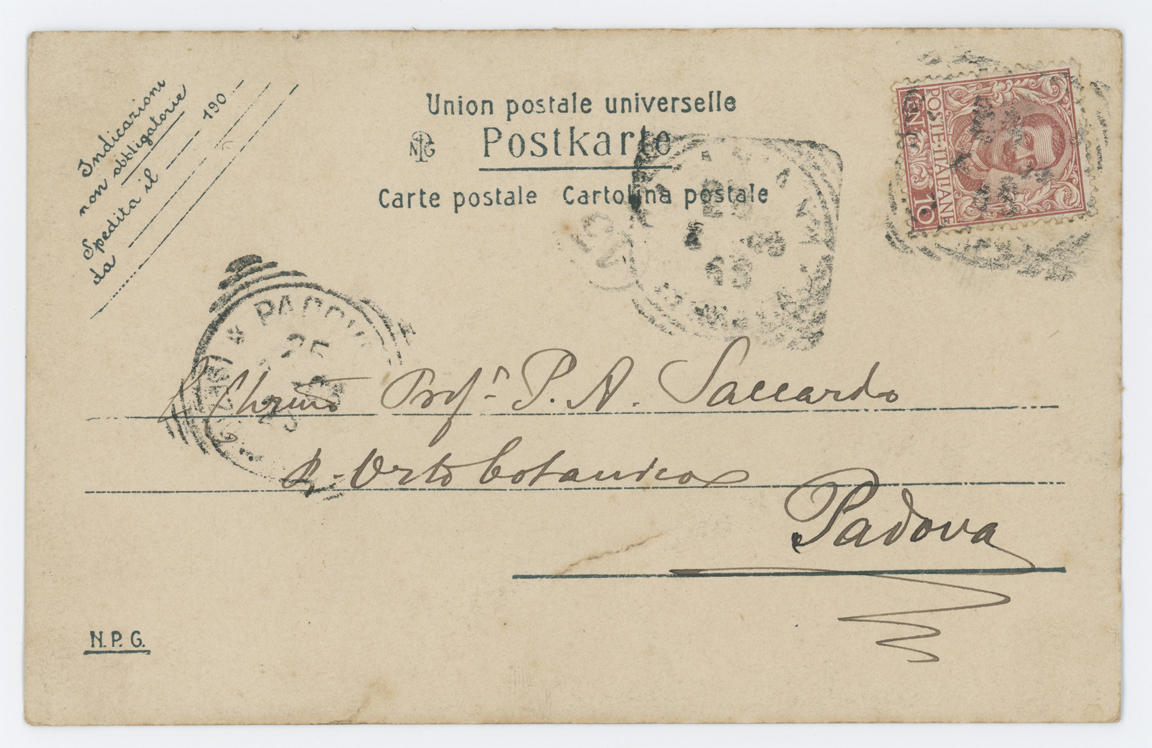 Indicazioni
non obbligatorie
Spedita il 190
da
Union postale universelle
NPG Postkarte
Carte postale Cartolina postale
POSTE·ITALIANE
CENT. 10
PADOVA
25
Prof.r P. A. Saccardo
R. Orto botanico
Padova
N.P.G.